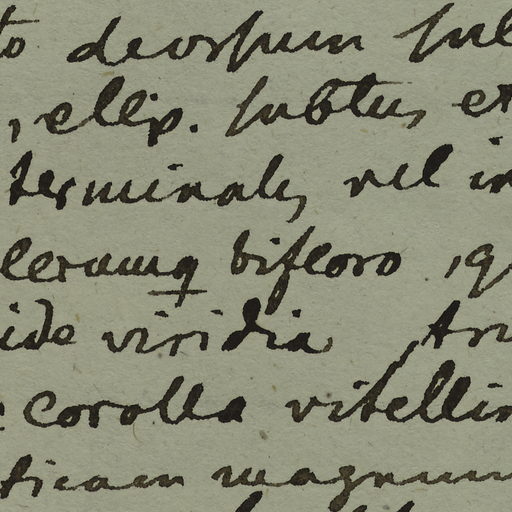 to deorsum sub
, ellip. subtus et
terminales vel in
lerumq bifloro , q
ide viridia , tri
corolla vitellin
ticam magnum